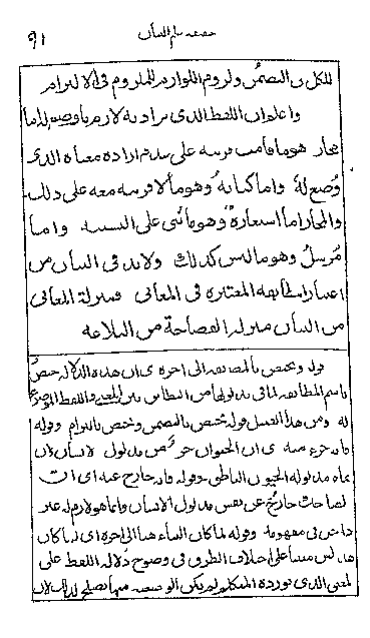 ٩١
حقيقة علم البيان
للكل فى التضمن ولزوم اللوازم للملزوم فى الالتزام
واعلم ان اللفظ الذى يراد به لازم ما وضع له اما
مجاز هو ما قامت قرينة على عدم ارادة معناه الذى
وضع له واما كناية وهو ما لا قرينة معه على ذلك
والمجاز اما استعارة وهو ما بنى على التشبيه واما
مرسل وهو ما ليس كذلك ولا بد فى البيان من
اعتبار المطابقة المعتبرة فى المعانى فمنزلة المعانى
من البيان منزلة الفصاحة من البلاغة
قوله ويختص بالمطابقة الى اخره اى ان هذه الدلالة
باسم المطابقة لما فى مدلولها من التطابق بين المعنى واللفظ
له ومن هذا القبيل قوله يختص بالتضمن ويختص بالالتزام وقوله
فانه جزء منه اى ان الحيوان جزء من مدلول الانسان لان
مدلوله الحيوان الناطق وقوله فانه خارج عنه اى ان
الضاحك خارج عن نفس مدلول الانسان وانما هو لازم له غير
داخل فى مفهومه وقوله لما كان البناء هنا الى اخره اى لما كان
مبنيا على اختلاف الطرق فى وضوح دلالة اللفظ على
المعنى الذى يورده المتكلم لم يكن الوضعية منها تصلح لذلك لان